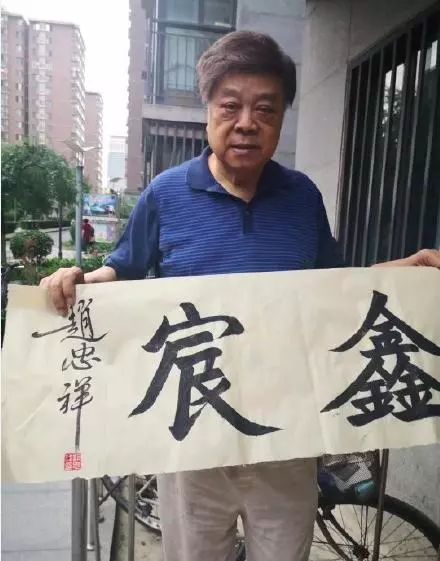 鑫宸
趙忠祥